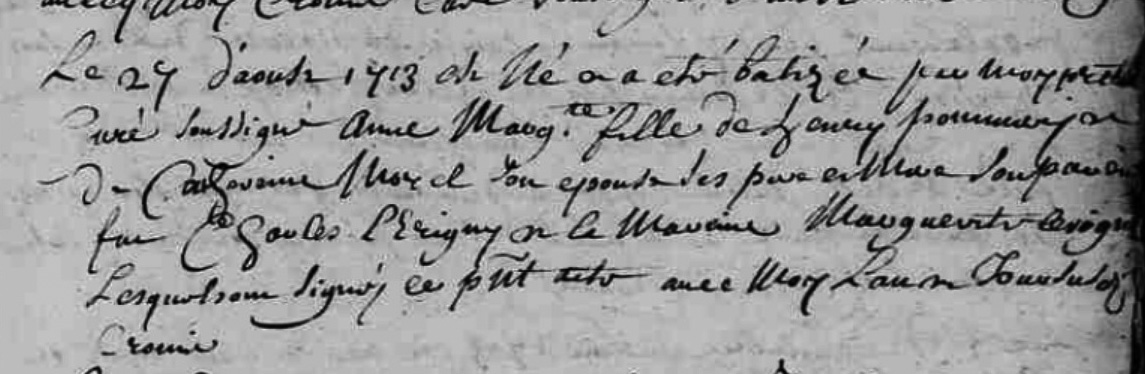 Le 27 d'aoust 1713 est Né et a eté batizée par moy prtre
Curé soussigné Anne Marg.te fille de henry pommier et
de Catherine Morel son epouse ses pere et Mere son parain
fut Charles et la Maraine Marguerite
Lesquels ont signés ce pñt acte avec Moy L'an et Jour susd.